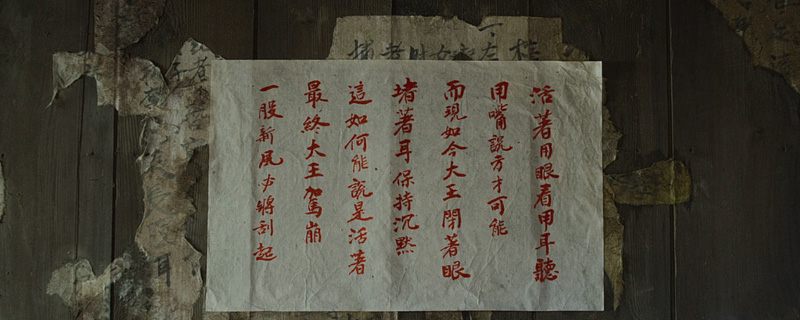 活著用眼看用耳聽
用嘴說方才可能
而現如今大王閉著眼
堵著耳保持沉默
這如何能說是活著
最終大王駕崩
一股新風必將刮起